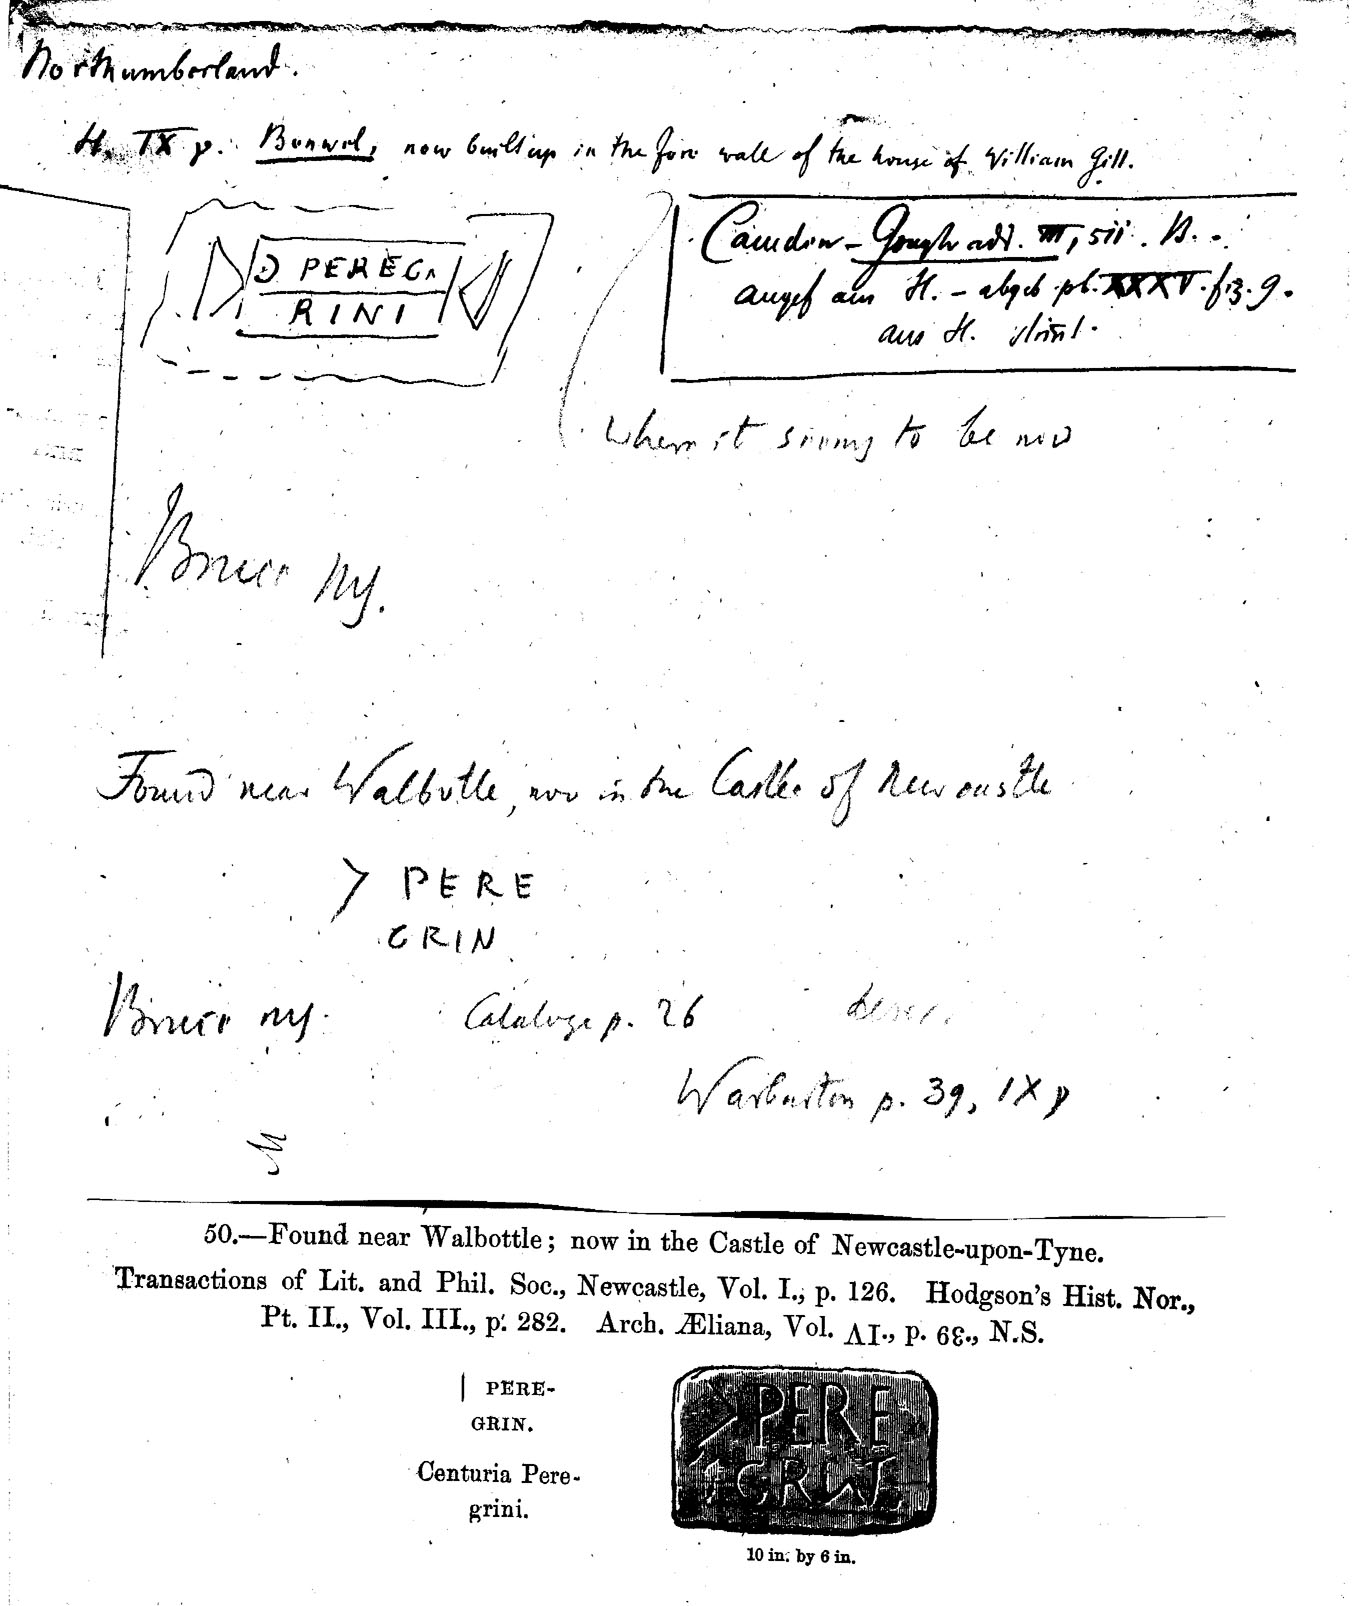 Northumberland.
H. IX p. Benwel, now built up in the fore wall of the house of William Gill.
Ɔ PEREG
RINI
Camden-Gough add. III, 511. B.
angef aus H. - abgeb pl. XXXV. fig. 9.
aus H. stimt.
Where it seems to be now
Bruce ms.
Found near Walbottle, now in the Castle of Newcastle
> PERE
GRIN
Bruce ms. Catalogue p. 26
Warburton p. 39, IX p
50.—Found near Walbottle; now in the Castle of Newcastle-upon-Tyne.
Transactions of Lit. and Phil. Soc., Newcastle, Vol. I., p. 126. Hodgson's Hist. Nor.,
Pt. II., Vol. III., p. 282. Arch. Æliana, Vol. VI., p. 63., N.S.
| PERE-
GRIN.
Centuria Pere-
grini.
> PERE
GRIN
10 in. by 6 in.